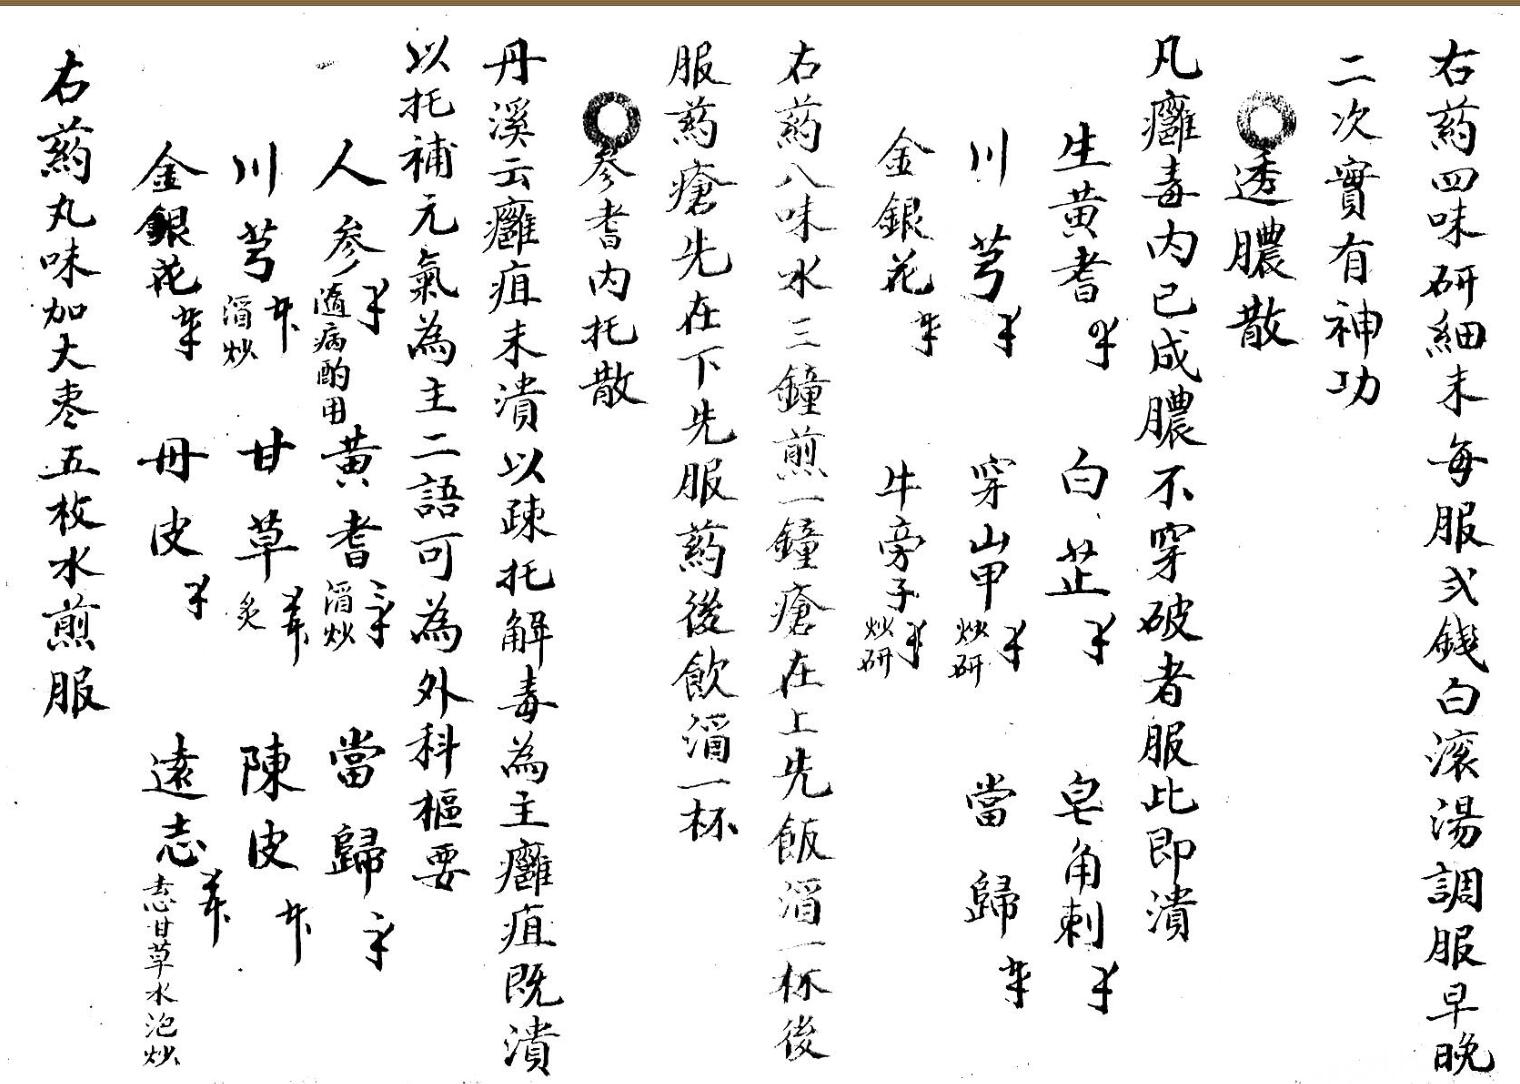 右葯四味研細末每服弍錢白滚湯調服早晚
二次實有神功
透膿散
凡癰毒内已成膿不穿破者服此即潰
生黄耆 白芷 皂角刺
川芎 穿山甲炒研 當歸
金銀花 牛旁子炒研
右葯八味水三鐘煎一鐘瘡在上先飯酒一杯後
服葯瘡先在下先服葯後飲酒一杯
参耆内托散
丹溪云癰疽未潰以疎托解毒為主癰疽既潰
以托補元氣為主二語可為外科樞要
人参隨病酌用 黄耆酒炒 當歸
川芎酒炒 甘草炙 陳皮
金銀花 丹皮 遠志志甘草水泡炒
右葯丸味加大枣五枚水煎服